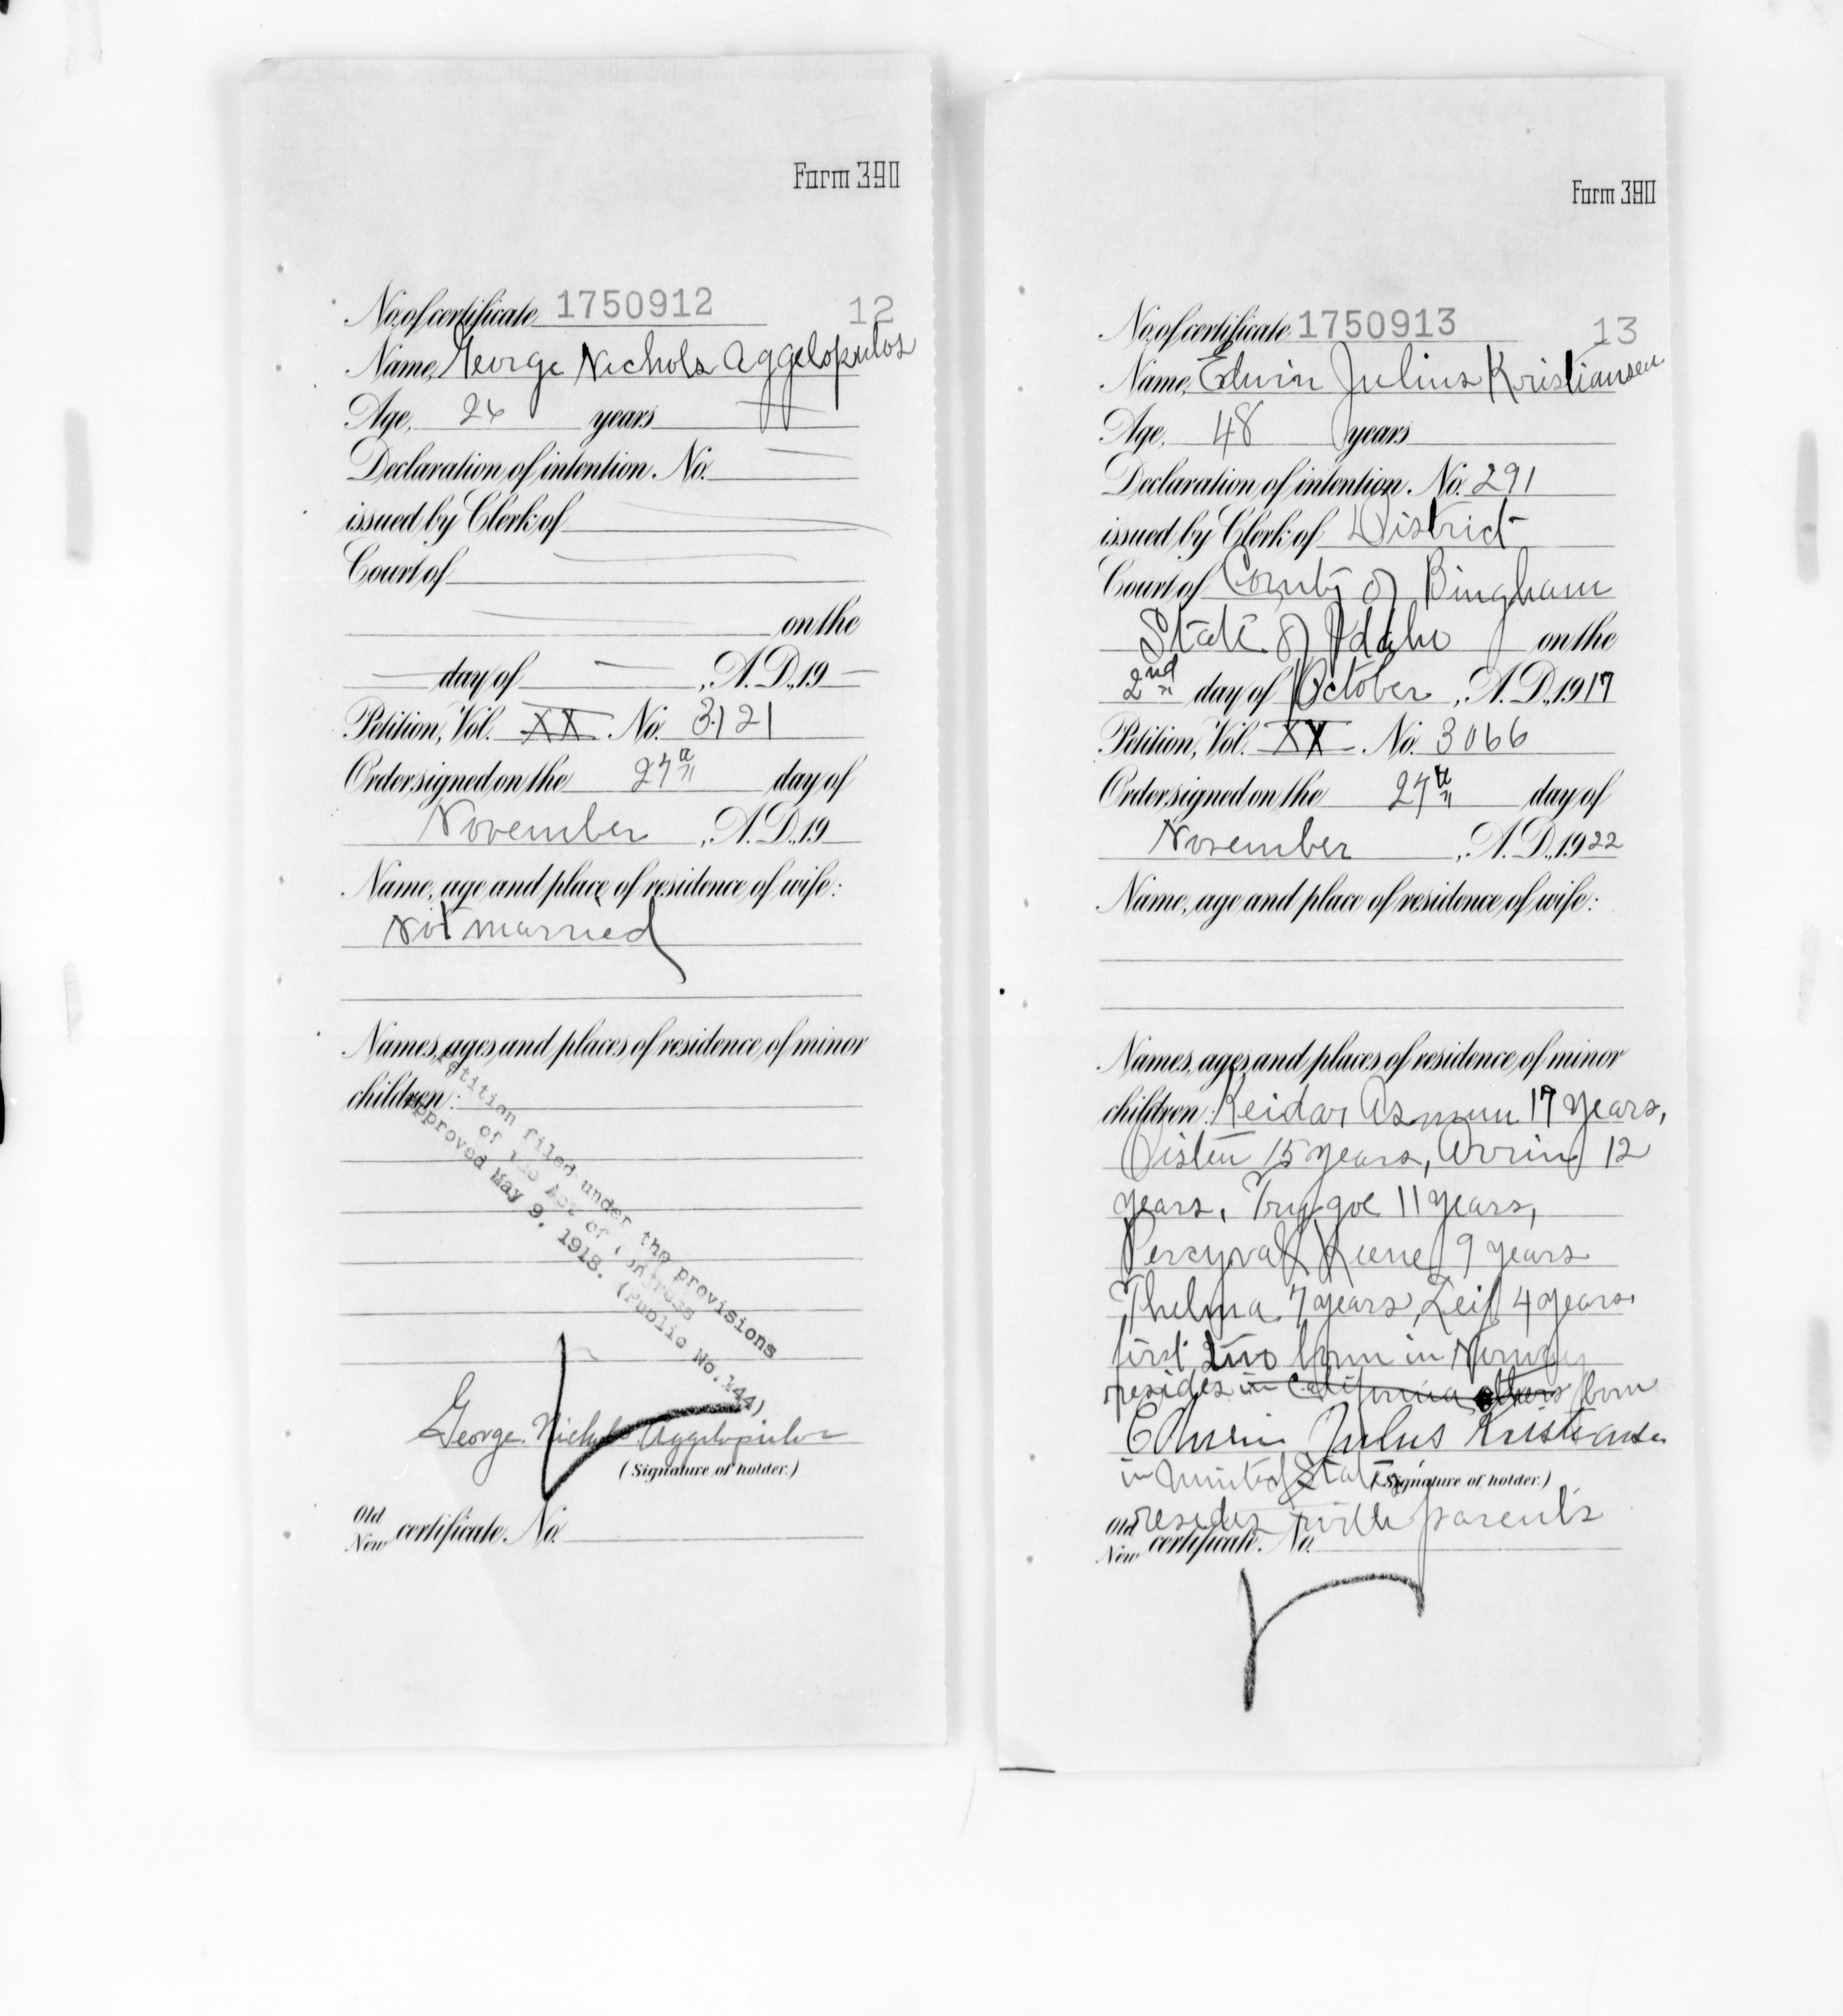 Form 390
No. of certificate 1750912 12
Name, George Nichols Aggelopulos
Age, 26 years
Declaration of intention. No.
issued by Clerk of
Court of
on the
day of , A. D., 19
Petition, Vol. XX No. 3121
Order signed on the 27th day of
November , A. D., 19
Name, age and place of residence of wife:
Not married
Names, ages and places of residence of minor
children:
Petition filed under the provisions
of the Act of Congress
approved May 9, 1918. (Public No. 144)
George Nichols Aggelopulos
(Signature of holder.)
Old
New certificate. No.
Form 390
No. of certificate 1750913 13
Name, Edwin Julius Kristiansen
Age, 48 years
Declaration of intention. No. 291
issued by Clerk of District
Court of County of Bingham
State of Idaho on the
2nd day of October , A. D., 1917
Petition, Vol. XX No. 3066
Order signed on the 27th day of
November , A. D., 1922
Name, age and place of residence of wife:
Names, ages and places of residence of minor
children: Reidar 17 years,
15 years, 12
years, Trygve 11 years,
Percyval 9 years
Thelma 7 years, Leif 4 years.
first two born in Norway
resides in California others born
Edwin Julius Kristiansen
in United States,
(Signature of holder.)
resides with parents
Old
New certificate. No.